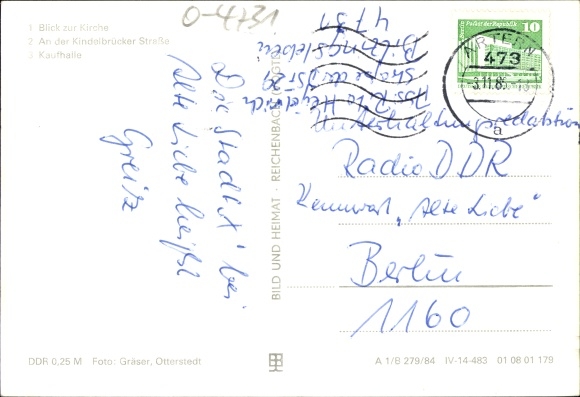 O-4731
1 Blick zur Kirche
2 An der Kindelbrücker Straße
3 Kaufhalle
Die Stadt bei
Alte Liebe heißt
Greitz
Abs. Rita
Straße der 29
Bilzingsleben
4731
BILD UND HEIMAT · REICHENBACH
Palast der Republik
10
ARTERN
473
a
Unterhaltungsredaktion
Radio DDR
Kennwort „Alte Liebe"
Berlin
1160
DDR 0,25 M Foto: Gräser, Otterstedt
A 1/B 279/84 IV-14-483 01 08 01 179